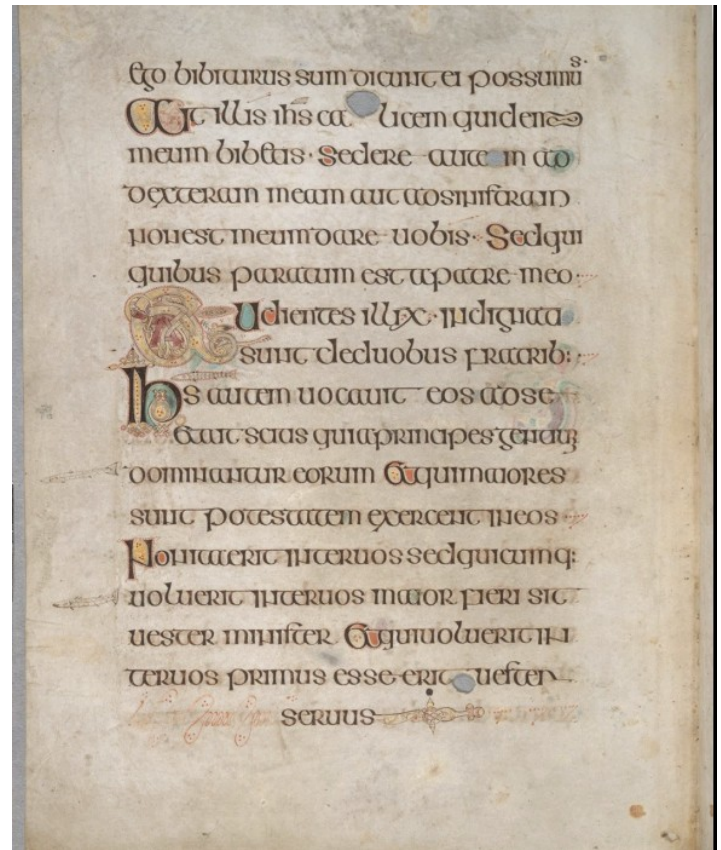 ego bibiturus sum dicunt ei possumus
Ait illis ihs calicem quidem
meum bibetis · Sedere autem ad
dexteram meam aut adsinistram
non est meum dare uobis · Sedqui
quibus paratum est apatre meo ·
Audientes illi x · indignati
sunt deduobus fratrib:
Ihs autem uocauit eos adse
& ait scitis quia principes gentium
dominantur eorum Et quimaiores
sunt potestatem exercent ineos
Nonitaerit interuos sedquicumq:
uoluerit interuos maior fieri sit
uester minister Et quiuoluerit in
teruos primus esse erit uester
seruus